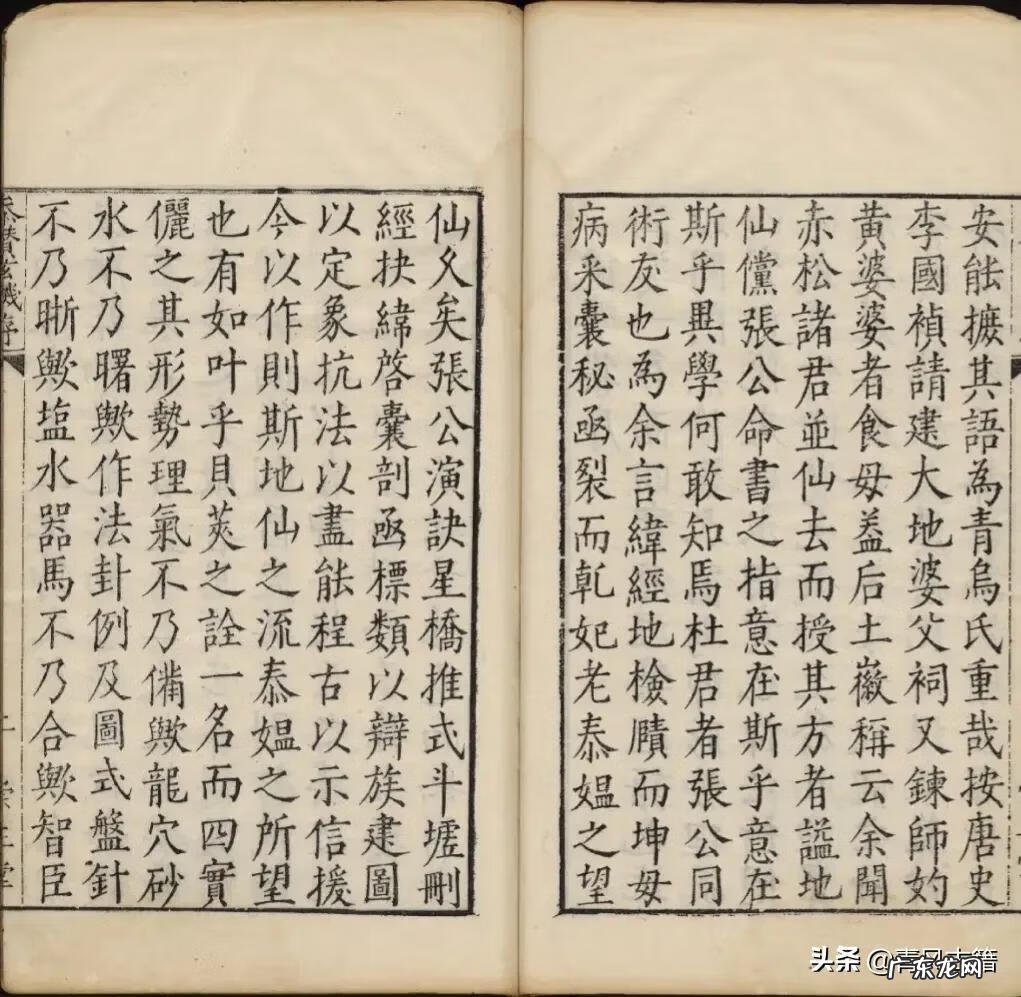 安能攈其語為青烏氏重哉按唐史
李國禎請建大地婆父祠又鍊師妁
黄婆婆者食母葢后土徽稱云余聞
赤松諸君並仙去而授其方者謚地
仙儻張公命書之指意在斯乎意在
斯乎異學何敢知焉杜君者張公同
術友也為余言緯經地檢賾而坤母
病釆囊秘凾裂而乹妃老泰媼之望
仙久矣張公演訣星橋推式斗墟刪
經抉緯啓囊剖凾標類以辯族建圖
以定象抗法以盡能程古以示信援
今以作則斯地仙之流泰媼之所望
也有如叶乎貝莢之詮一名而四實
儷之其形勢理氣不乃備歟龍穴砂
水不乃曙歟作法卦例及圖式盤針
不乃晣歟塩水器馬不乃合歟智臣
頭条
广东龙网